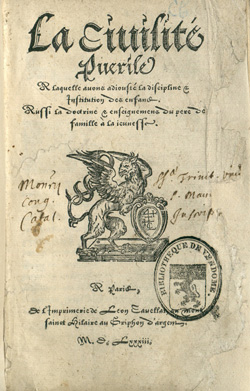 La Ciuilité
Puerile
A laquelle auons adiousté la discipline &
Institution des enfans.
Aussi la doctrine & enseignemens du pere de
famille a la ieunesse.
Cong.
BIBLIOTHEQUE DE VENDOME
A Paris
De l'Imprimerie de Leon Cauellat, au mont
sainct Hilaire au Griphon d'argent.
M. D. Lxxxiii,